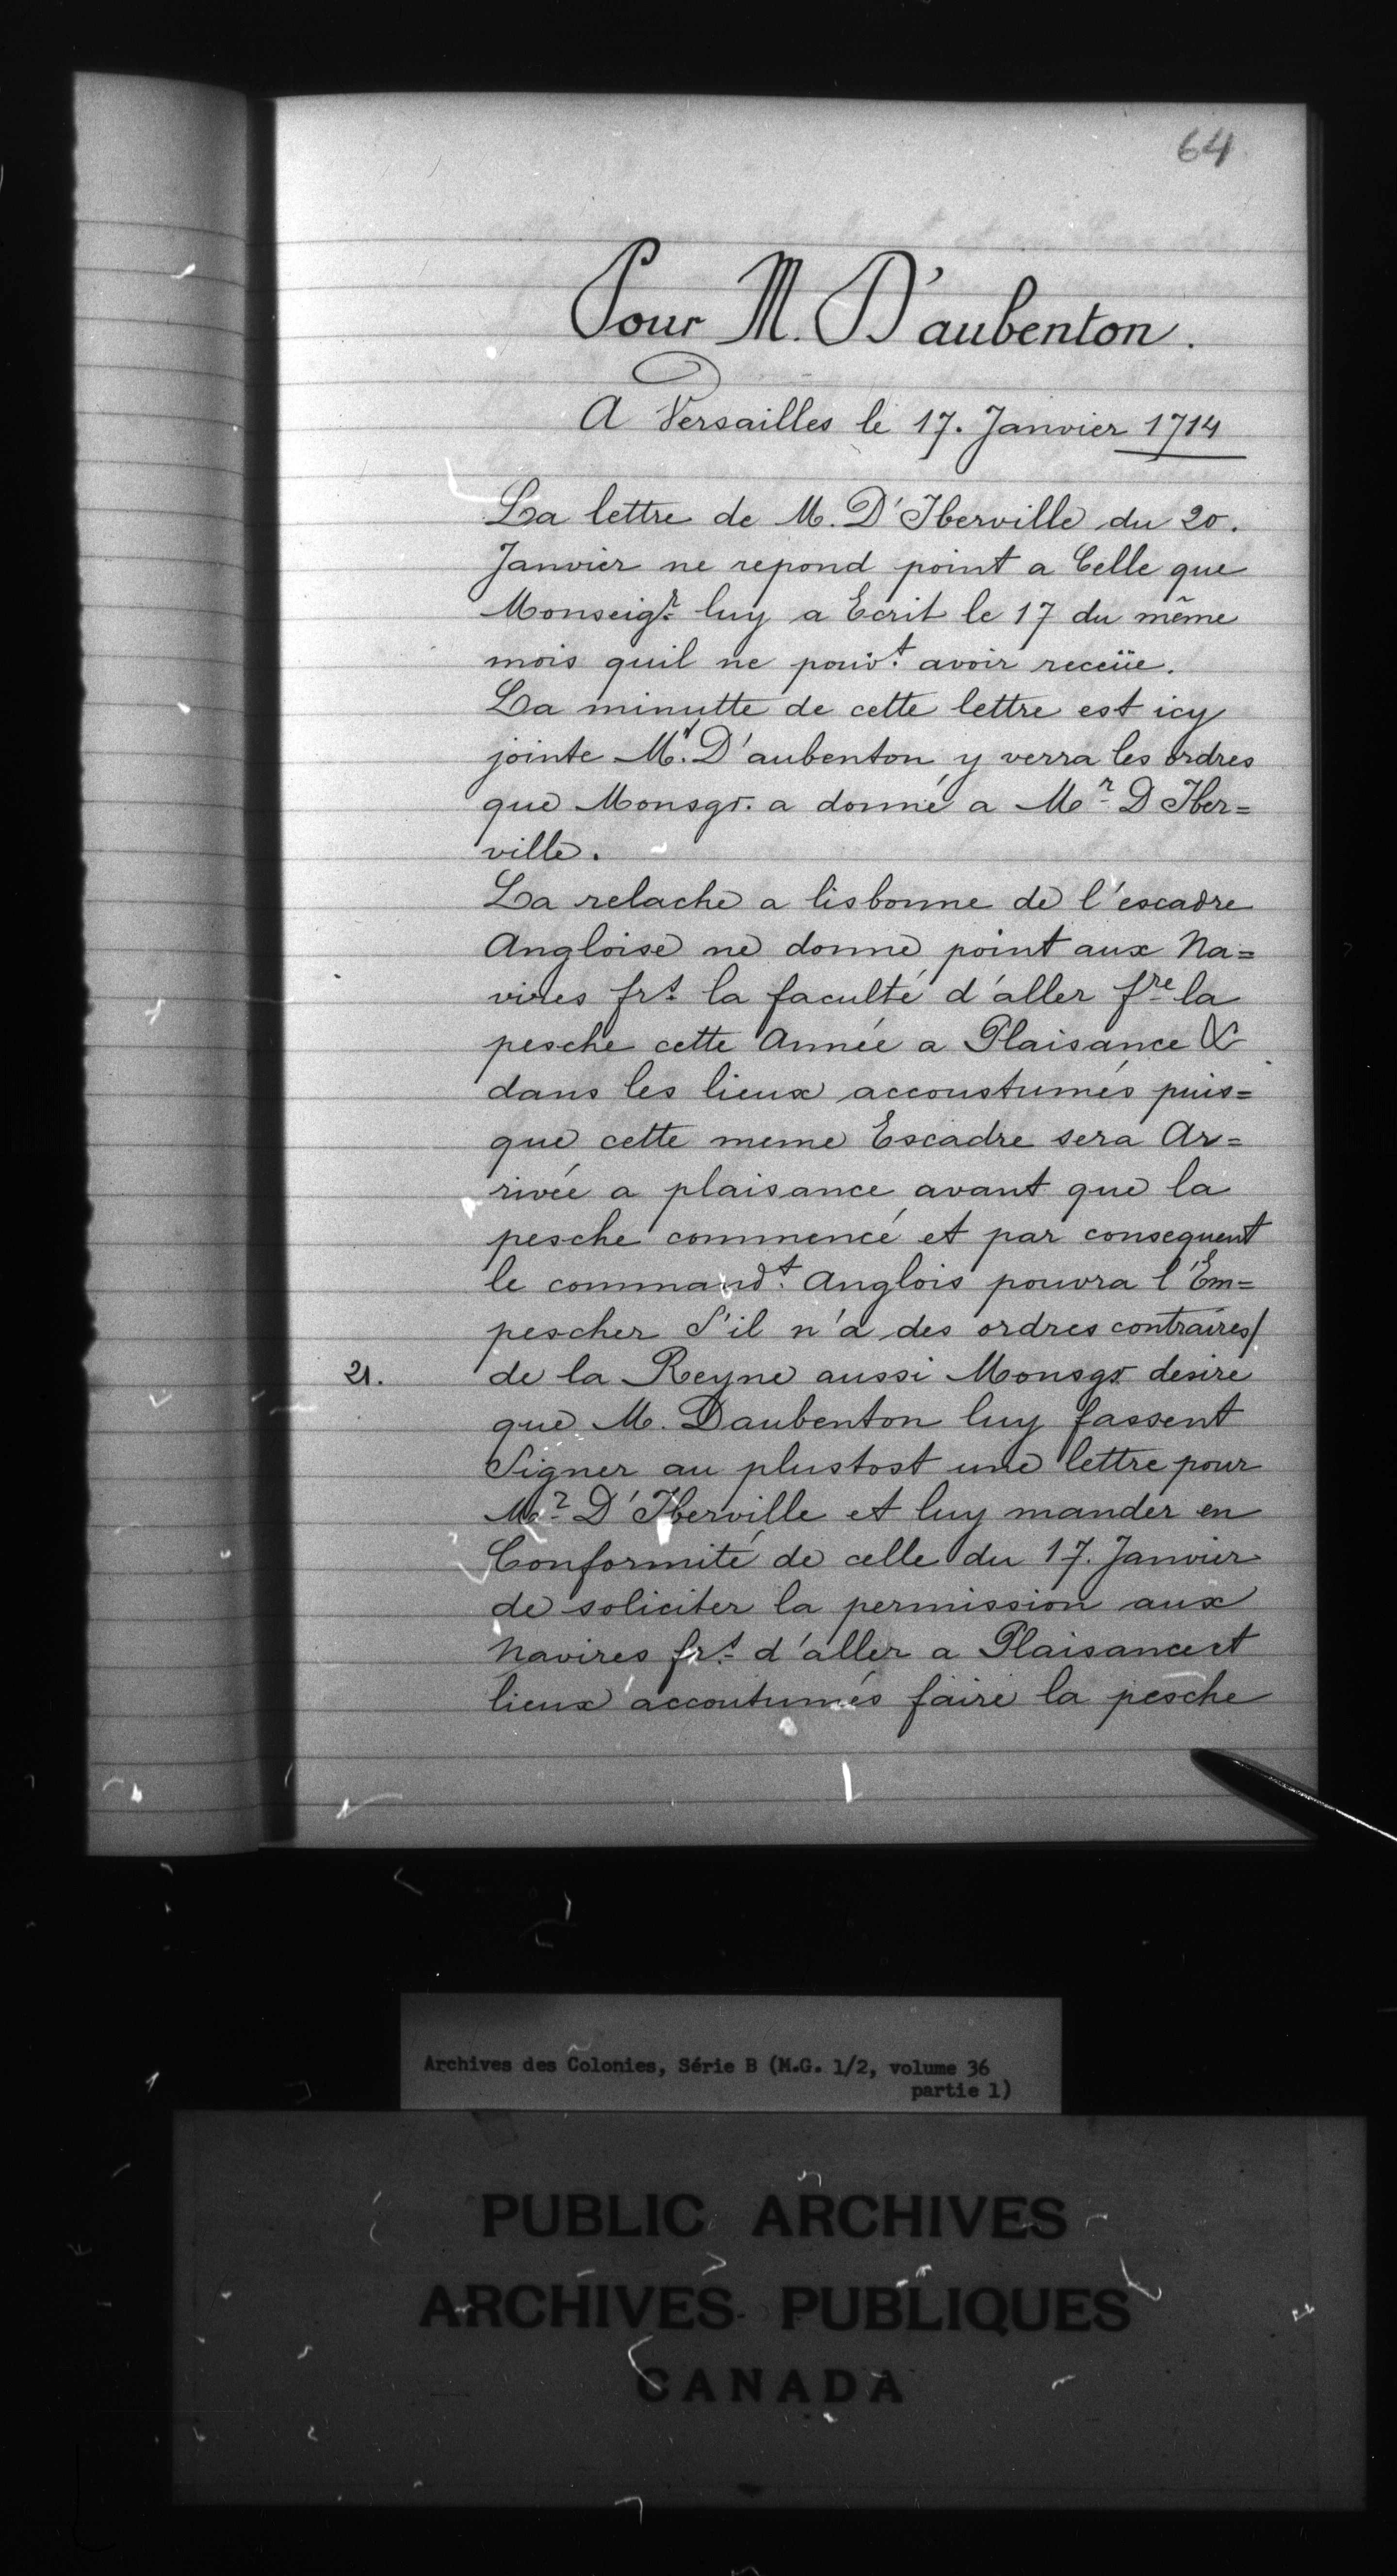 64
Pour M. D'aubenton.
A Versailles le 17. Janvier 1714
La lettre de M. D'Iberville du 20.
Janvier ne repond point a Celle que
Monseigr. luy a Ecrit le 17 du même
mois quil ne pouvt. avoir receüe.
La minutte de cette lettre est icy
jointe Mr. D'aubenton y verra les ordres
que Monsgr. a donné a Mr. D Iber=
ville.
La relache a lisbonne de l'escadre
Angloise ne donne point aux Na=
vires frs. la faculté d'aller fre la
pesche cette Année a Plaisance &
dans les lieux accoustumés puis=
que cette meme Escadre sera Ar=
rivée a plaisance avant que la
pesche commencé et par consequent
le commandt. Anglois pouvra l'Em=
pescher S'il n'a des ordres contraires/
21. de la Reyne aussi Monsgr desire
que M. Daubenton luy fassent
Signer au plustost une lettre pour
Mr. D'Iberville et luy mander en
Conformité de celle du 17. Janvier
de soliciter la permission aux
Navires frs. d'aller a Plaisance et
lieux accoutumés faire la pesche
Archives des Colonies, Série B (M.G. 1/2, volume 36
partie 1)
PUBLIC ARCHIVES
ARCHIVES PUBLIQUES
CANADA